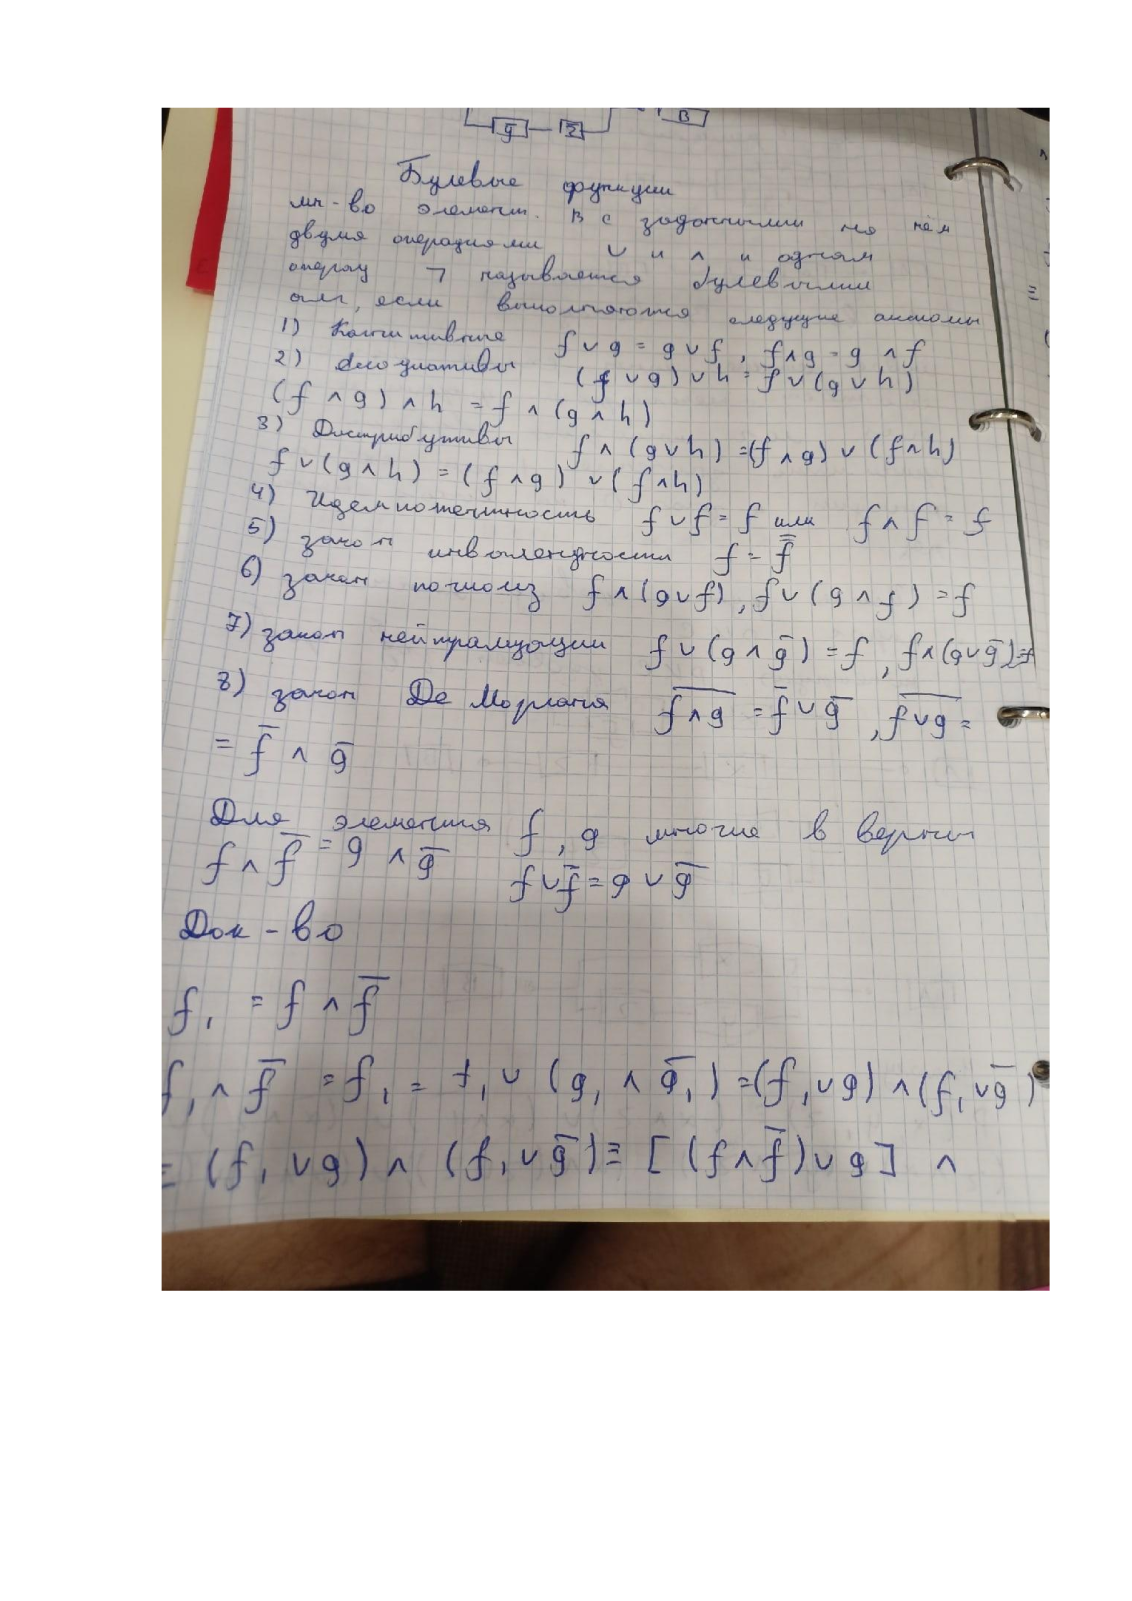 g Σ B
Булевые функции
мн-во элемент. B с заданными на нём
двумя операциями ∨ и ∧ и одном
операц ¬ называется булевыми
алг, если выполняются следующие аксиомы
1) f ∨ g = g ∨ f , f ∧ g = g ∧ f
2) (f ∨ g) ∨ h = f ∨ (g ∨ h)
(f ∧ g) ∧ h = f ∧ (g ∧ h)
3) Дистрибутивы f ∧ (g ∨ h) = (f ∧ g) ∨ (f ∧ h)
f ∨ (g ∧ h) = (f ∧ g) ∨ (f ∧ h)
4) Идемпотентность f ∨ f = f или f ∧ f = f
5) закон f = f̿
6) закон f ∧ (g ∨ f) , f ∨ (g ∧ f) = f
7) закон нейтрализации f ∨ (g ∧ g̅) = f , f ∧ (g ∨ g̅) = f
8) закон Де Моргана f̅ ̅∧̅ ̅g̅ = f̅ ∨ g̅ , f̅ ̅∨̅ ̅g̅ =
= f̅ ∧ g̅
Для элемента f , g многие в верны
f ∧ f̅ = g ∧ g̅ f ∨ f̅ = g ∨ g̅
Док-во
f₁ = f ∧ f̅
f₁ ∧ f̅ = f₁ = f₁ ∨ (g₁ ∧ g̅₁) = (f₁ ∨ g) ∧ (f₁ ∨ g̅)
= (f₁ ∨ g) ∧ (f₁ ∨ g̅) ≡ [(f ∧ f̅) ∨ g] ∧